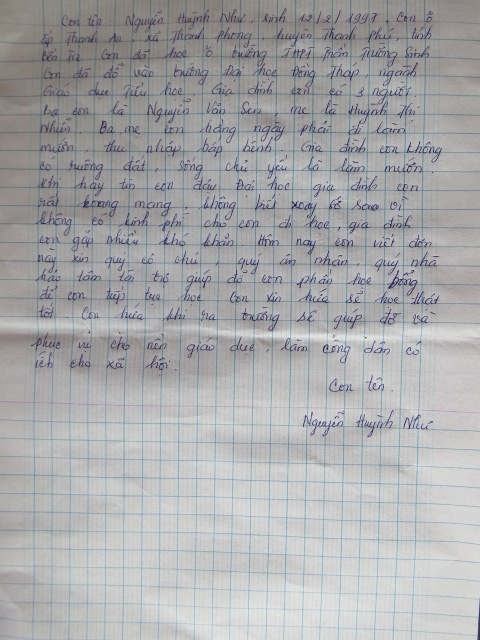 Con tên Nguyễn Huỳnh Như, sinh 12/2/1997. Con ở
ấp Thạnh An xã Thạnh Phong, huyện Thạnh Phú, tỉnh
Bến Tre Con đã học ở trường THPT Trần Trường Sinh
Con đã đỗ vào trường Đại học Đồng Tháp, ngành
Giáo dục Tiểu học Gia đình con có 3 người.
Ba con là Nguyễn Văn Sen mẹ là Huỳnh Thị
Nhuần Ba mẹ con hằng ngày phải đi làm
mướn, thu nhập bấp bênh. Gia đình con không
có ruộng đất, sống chủ yếu là làm mướn.
Khi hay tin con đậu Đại học gia đình con
rất hoang mang, không biết xoay sở sao vì
không có kinh phí cho con đi học, gia đình
con gặp nhiều khó khăn Hôm nay con viết đơn
này xin quý cô chú, quý ân nhân, quý nhà
hảo tâm tài trợ giúp đỡ con phần học bổng
để con tiếp tục học Con xin hứa sẽ học thật
tốt Con hứa khi ra trường sẽ giúp đỡ và
phục vụ cho nền giáo dục, làm công dân có
ích cho xã hội.
Con tên.
Nguyễn Huỳnh Như